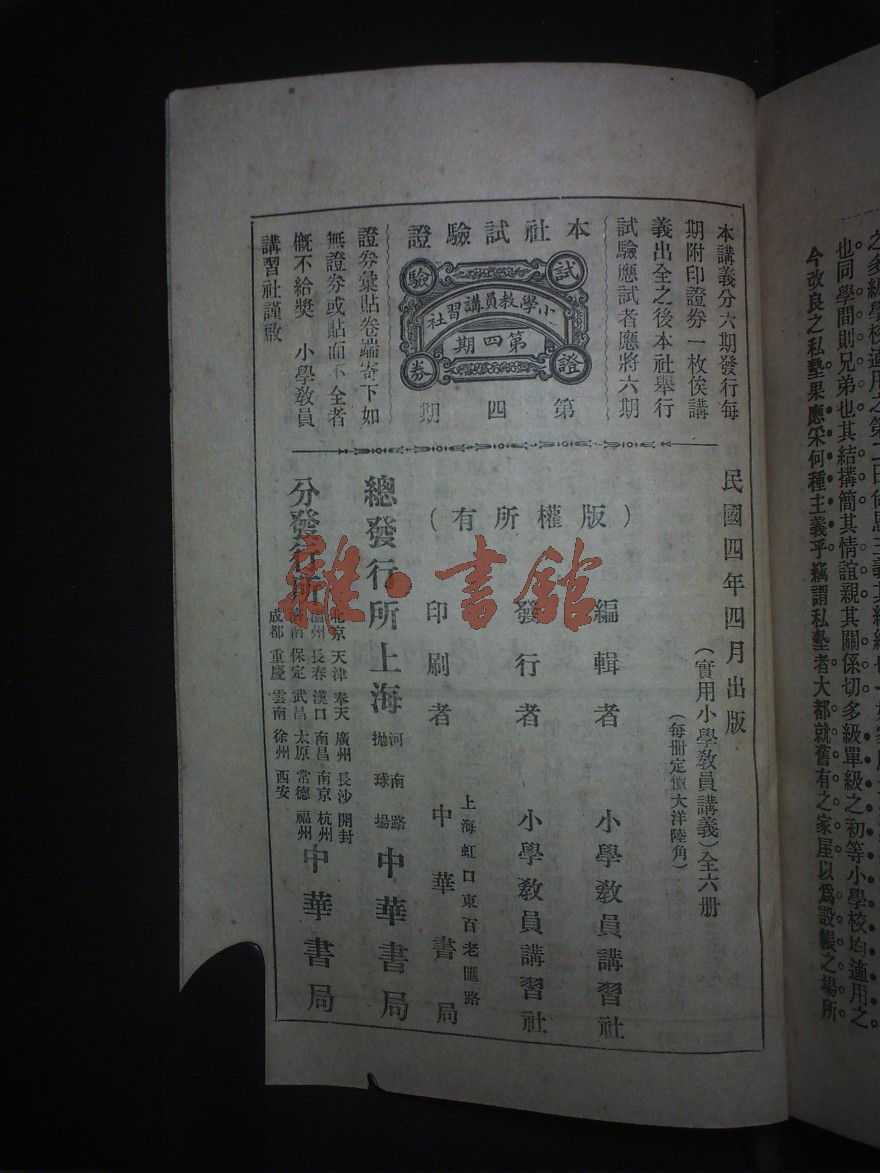 之多級學校適用之第二日
也同學間則兄弟也其結搆簡其情誼親其關係切多級單級之初等小學校均適用之
今改良之私塾果應采何種主義乎竊謂私塾者大都就舊有之家屋以爲設帳之場所
本講義分六期發行每
期附印證券一枚俟講
義出全之後本社舉行
試驗應試者應將六期
本社試驗證
試驗
證券
小學教員講習社
第四期
第四期
證券彙貼卷端寄下如
無證券或貼而不全者
槪不給奬 小學敎員
講習社謹啟
民國四年四月出版
(實用小學敎員講義)全六册
(每冊定價大洋陸角)
(版權所有)
編輯者 小學敎員講習社
發行者 小學敎員講習社
上海虹口東百老匯路
印刷者 中華書局
總發行所 上海 河南路拋球場 中華書局
分發行所
北京 天津 奉天 廣州 長沙 開封
長春 漢口 南昌 南京 杭州
濟南 保定 武昌 太原 常德 福州
成都 重慶 雲南 徐州 西安
中華書局
雜·書館